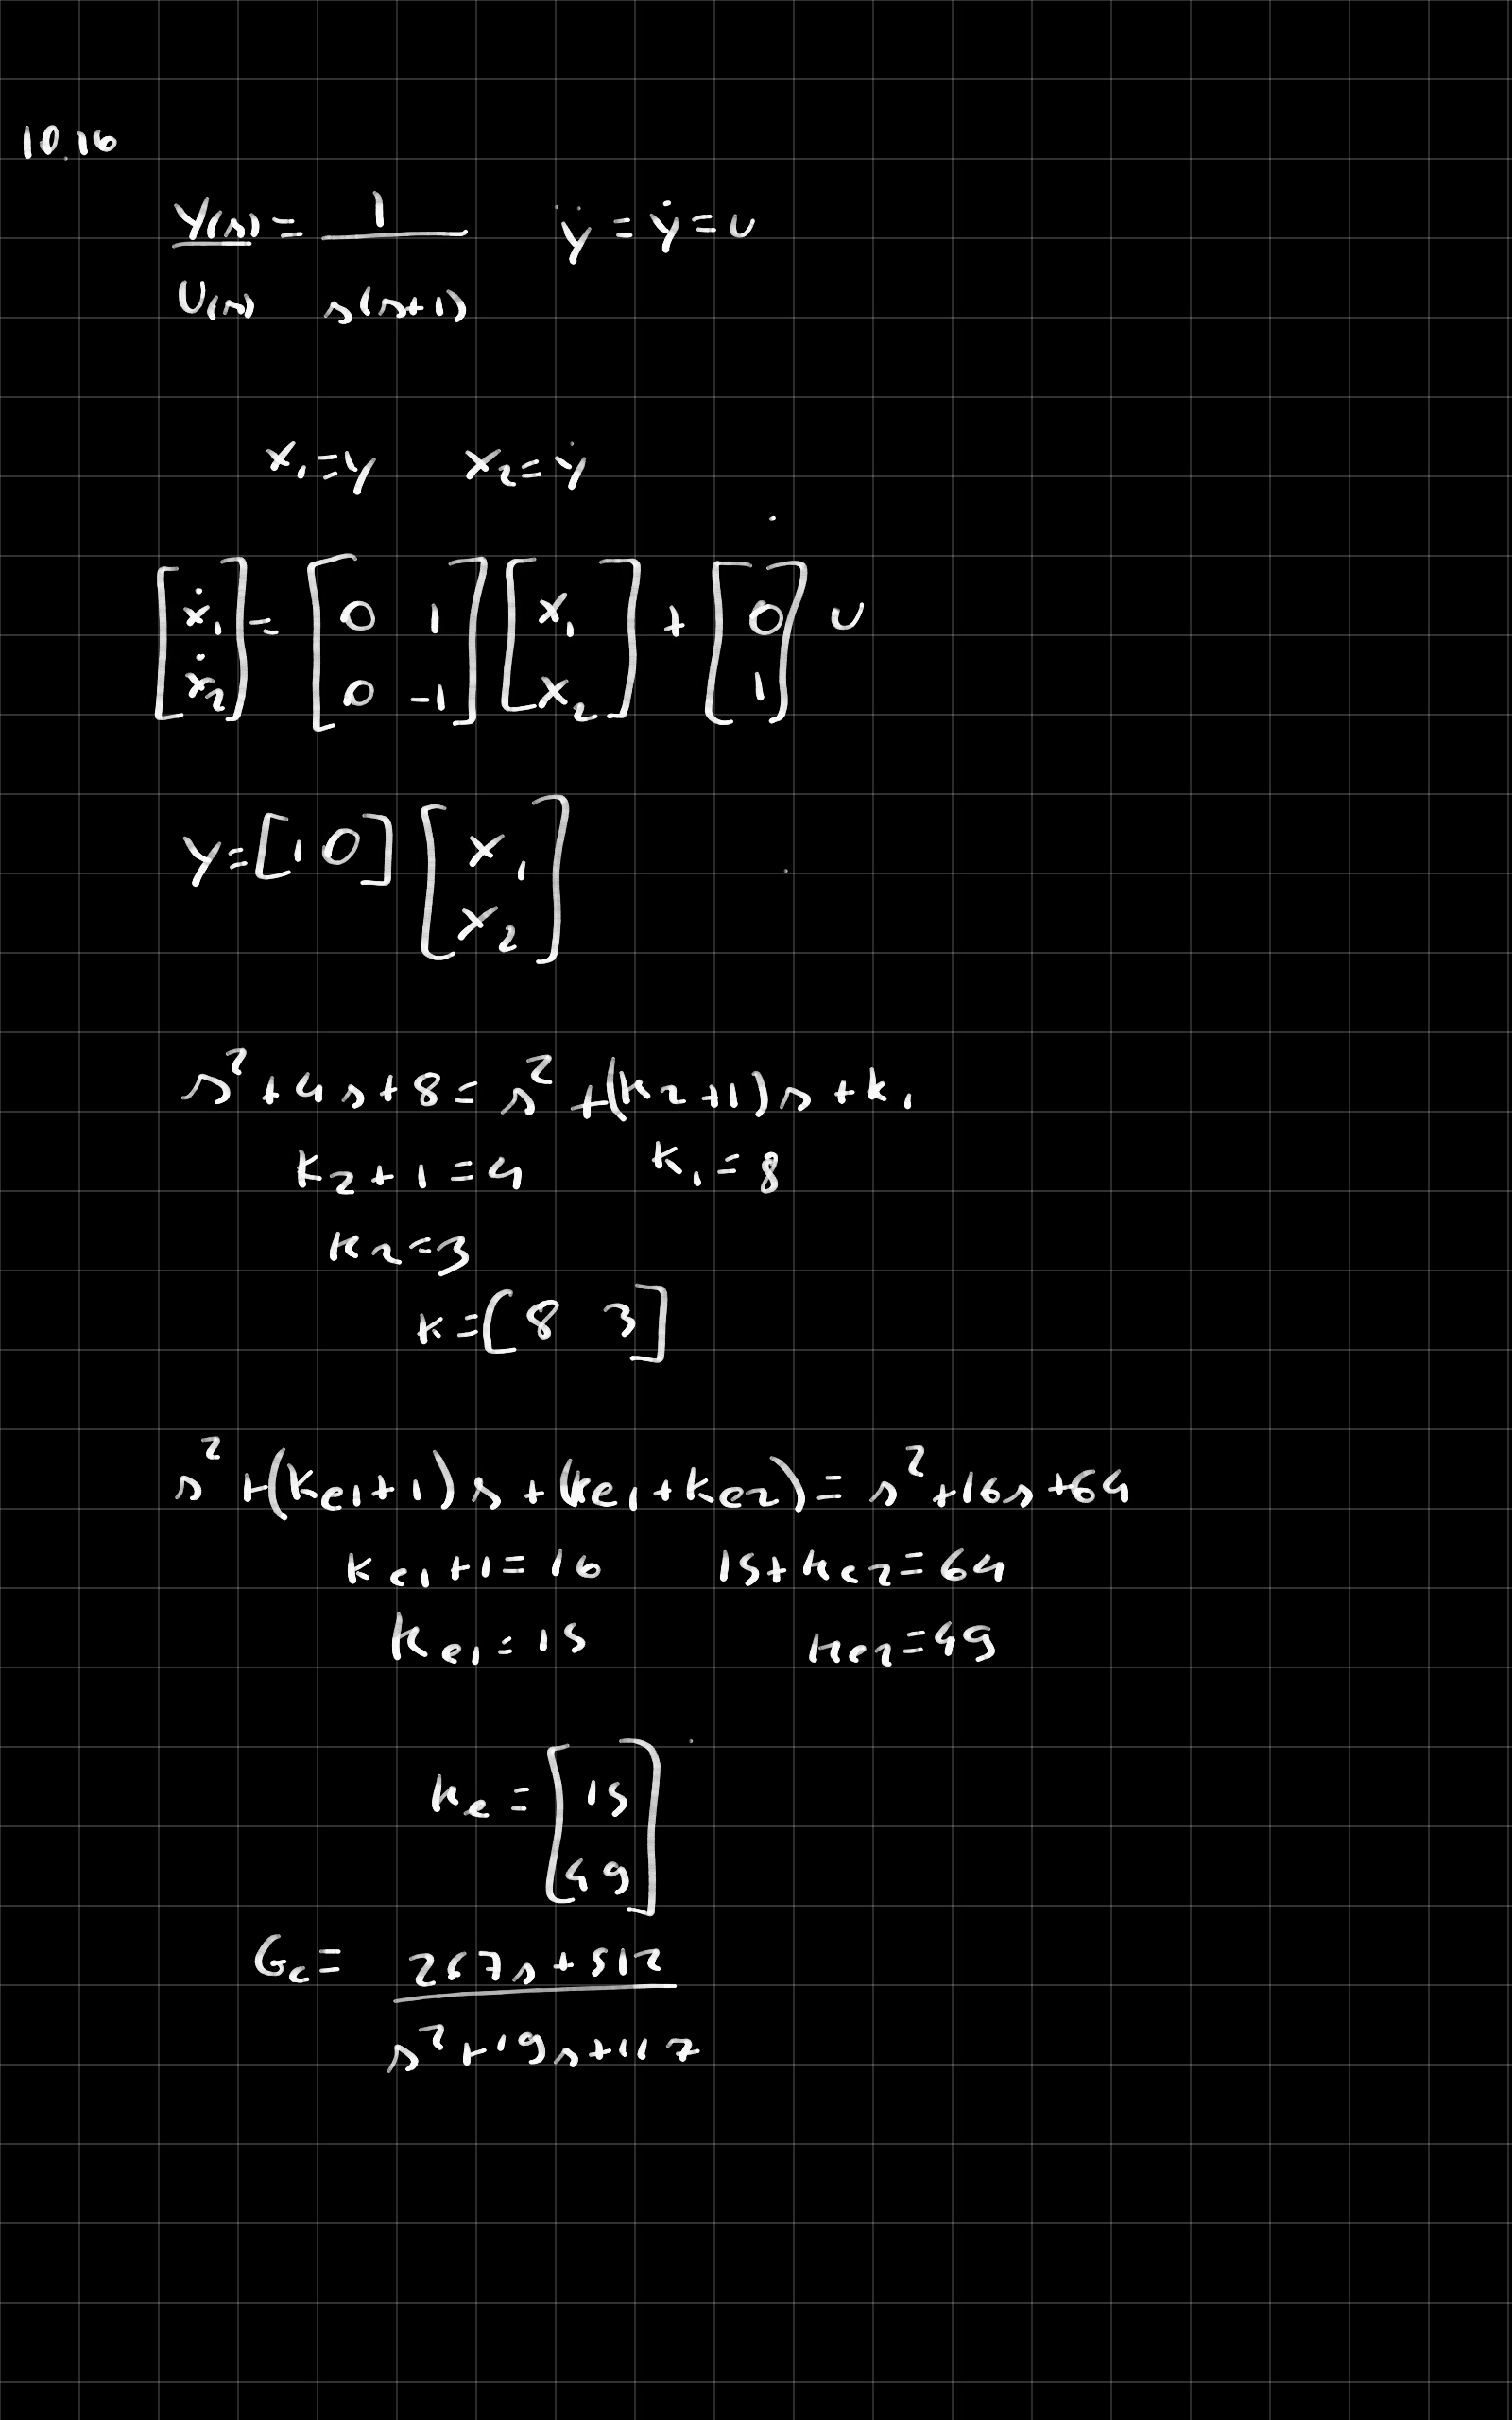 10.16
Y(s)/U(s) = 1/(s(s+1))    ÿ = ẏ = u
x₁=y    x₂=ẏ
[ẋ₁; ẋ₂] = [0 1; 0 -1] [x₁; x₂] + [0; 1] u
y=[1 0] [x₁; x₂]
s²+4s+8 = s²+(k₂+1)s+k₁
k₂+1=4    k₁=8
k₂=3
k=[8 3]
s²+(ke₁+1)s+(ke₁+ke₂) = s²+16s+64
ke₁+1=16    15+ke₂=64
ke₁=15    ke₂=49
ke = [15; 49]
Gc = (267s+512)/(s²+19s+117)